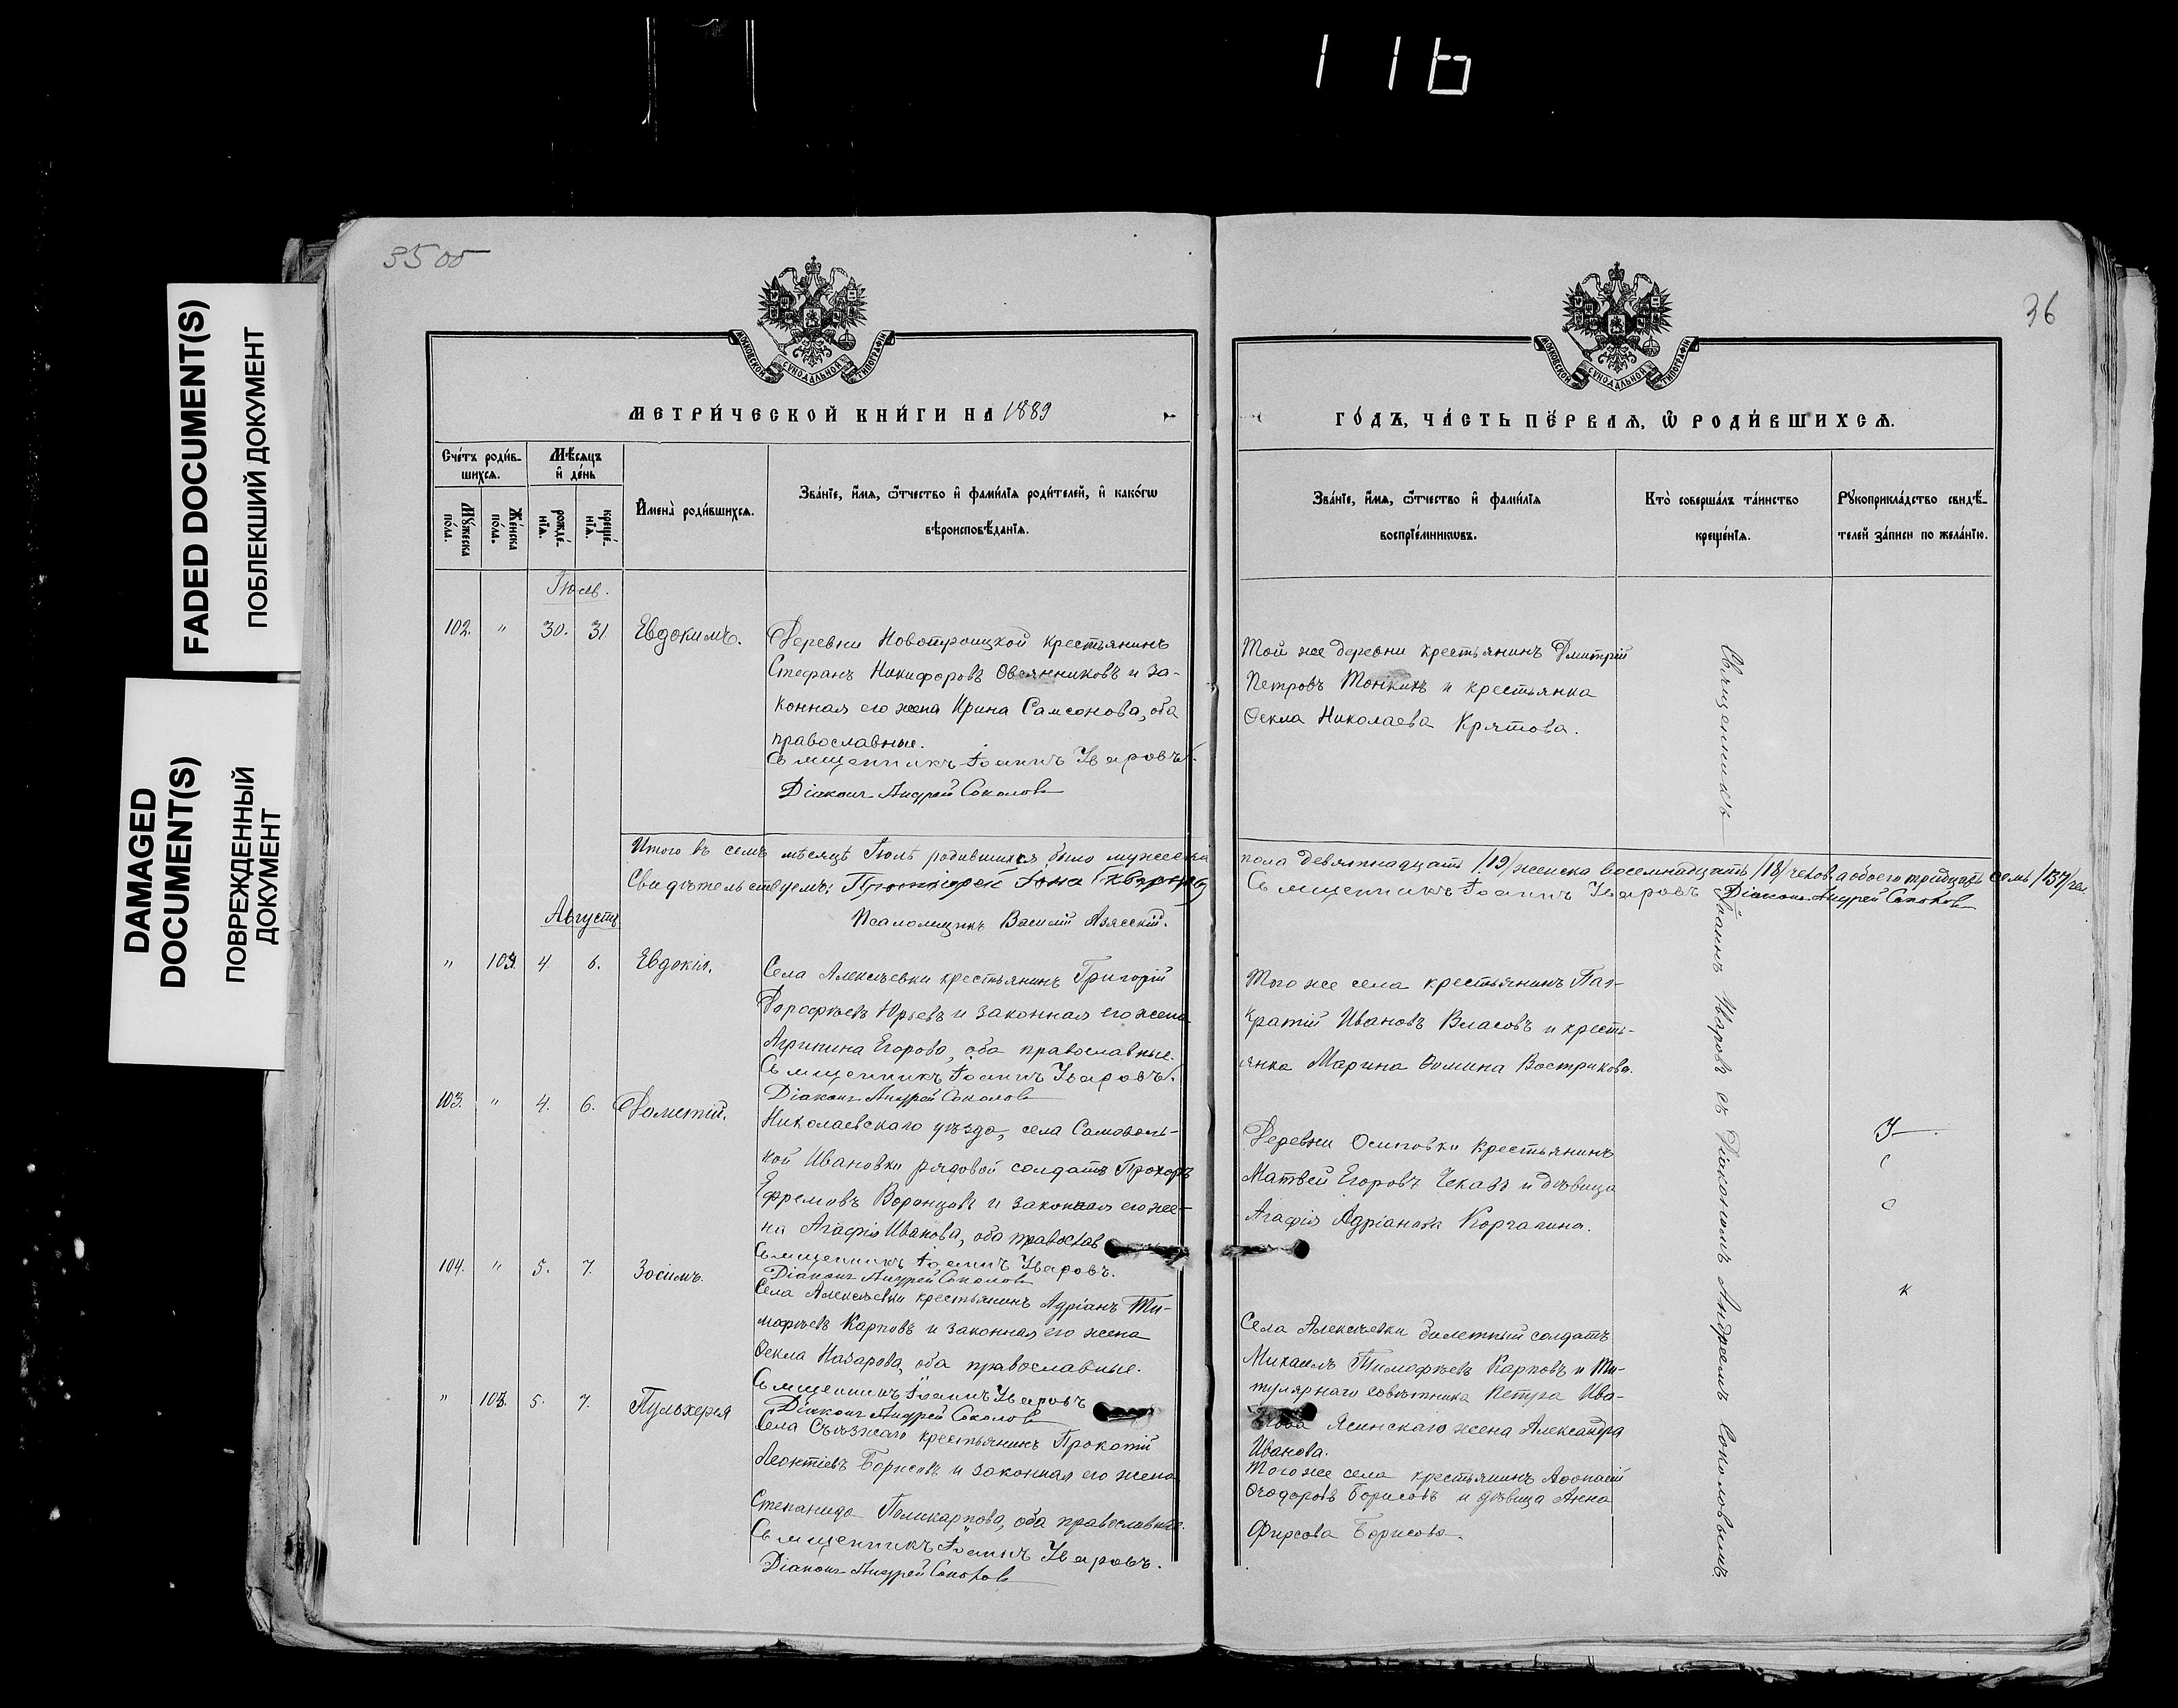 116
FADED DOCUMENT(S)
ПОБЛЕКШИЙ ДОКУМЕНТ
DAMAGED
DOCUMENT(S)
ПОВРЕЖДЕННЫЙ
ДОКУМЕНТ
35 об
36
МОСКОВСКОЙ СУНОДАЛЬНОЙ ТИПОГРАФІИ
МОСКОВСКОЙ СУНОДАЛЬНОЙ ТИПОГРАФІИ
МЕТРИ́ЧЕСКОЙ КНИ́ГИ НА 1889
ГО́ДЪ, ЧА́СТЬ ПЕ́РВАѦ, Ѡ РОДИ́ВШИХСѦ.
Сче́тъ роди́в-
шихсѧ.
Мѣ́сѧцъ
и҆ де́нь
Мꙋ́жеска
по́ла.
Же́нска
по́ла.
рожде́-
нїѧ.
креще́-
нїѧ.
И҆мена̀ роди́вшихсѧ.
Зва́нїе, и҆́мѧ, ѻ҆́тчество и҆ фами́лїѧ роди́телей, и҆ како́гѡ
вѣроисповѣ́данїѧ.
Зва́нїе, и҆́мѧ, ѻ҆́тчество и҆ фами́лїѧ
воспрїе́мникѡвъ.
Кто̀ соверша́лъ та́инство
креще́нїѧ.
Рꙋкоприкла́дство свидѣ́-
телей за́писи по жела́нїю.
Іюль.
102. " 30. 31. Евдокимъ.
Деревни Новотроицкой крестьянинъ
Стефанъ Никифоровъ Овсянниковъ и за-
конная его жена Ирина Самсонова, оба
православные.
Священникъ Іоаннъ Уваровъ.
Діаконъ Андрей Соколовъ
Той же деревни крестьянинъ Дмитрій
Петровъ Тонкихъ и крестьянка
Ѳекла Николаева Крятова.
Итого въ семъ мѣсяцѣ Іюлѣ родившихся было мужеска пола девятнадцать /19/ женска восемнадцать /18/ челов. а обоего тридцать семь /37/ чел
Свидѣтельствуемъ: Протоіерей Іона
Священникъ Іоаннъ Уваровъ Діаконъ Андрей Соколовъ
Псаломщикъ Василій Азясскій.
Августъ
" 103. 4. 6. Евдокія.
Села Алексѣевки крестьянинъ Григорій
Дорофѣевъ Юрьевъ и законная его жена
Агрипина Егорова, оба православные.
Священникъ Іоаннъ Уваровъ.
Діаконъ Андрей Соколовъ
Того же села крестьянинъ Пан-
кратій Ивановъ Власовъ и кресть-
янка Марина Ѳомина Вострикова.
103. " 4. 6. Дометій.
Николаевскаго уѣзда, села Самоволь-
ной Ивановки рядовой солдатъ Прохоръ
Ефремовъ Воронцовъ и законная его же-
на Агафія Иванова, оба православ
Священникъ Іоаннъ Уваровъ.
Діаконъ Андрей Соколовъ
Деревни Осиповки крестьянинъ
Матвей Егоровъ Чекавъ и дѣвица
Агафія Адріанова Коргагина.
104. " 5. 7. Зосимъ.
Села Алексѣевки крестьянинъ Адріанъ Ти-
мофѣевъ Карповъ и законная его жена
Ѳекла Назарова, оба православные.
Священникъ Іоаннъ Уваровъ
Діаконъ Андрей Соколовъ
Села Алексѣевки билетный солдатъ
Михаилъ Тимофѣевъ Карповъ и Ти-
тулярнаго совѣтника Петра Ива-
нова Ясинскаго жена Александра
Иванова.
" 5. 7. Пульхерія
Села Съѣзжаго крестьянинъ Прокопій
Леонтіевъ Борисовъ и законная его жена
Степанида Поликарпова, оба православные.
Священникъ Іоаннъ Уваровъ.
Діаконъ Андрей Соколовъ
Того же села крестьянинъ Аѳонасій
Ѳеодоровъ Борисовъ и дѣвица Анна
Фирсова Борисова.
Священникъ Іоаннъ Уваровъ съ Діакономъ Андреемъ Соколовымъ